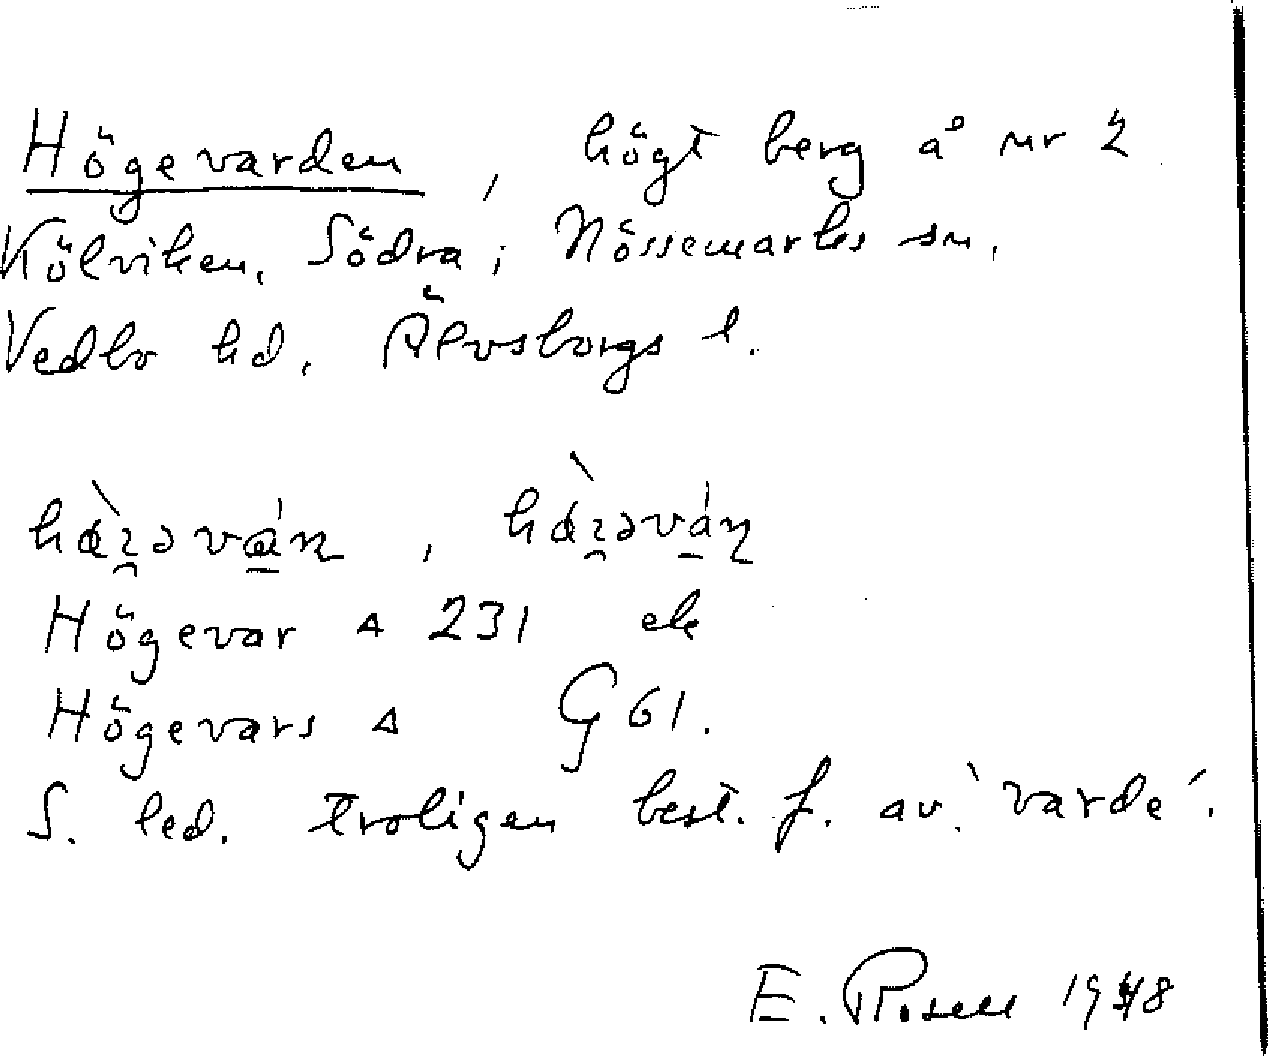 Högevarden, högt berg å nr 2
Kölviken, Södra; Nössemarks sn,
Vedbo hd, Älvsborgs l.
Högevar △ 231 ek
Högevars △ G 61.
S. led. troligen best. f. av 'varde'.
E. Rosell 1948